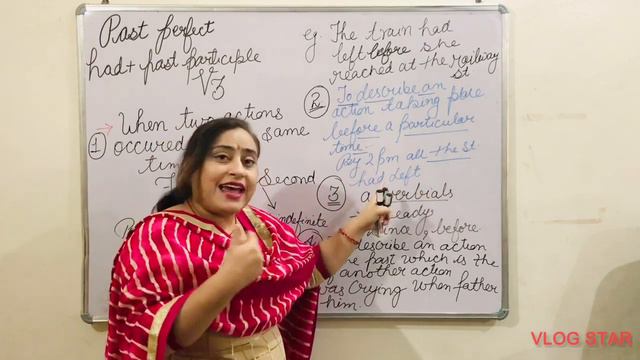 Past perfect
had+ past participle
V3
1 → When two actions
occured same
time
Second
indefinite
eg. The train had
left before she
reached at the railway
st
2 To describe an
action taking place
before a particular
time.
By 2 pm all the st.
had left
3 adverbials
ready
since, before
describe an action
past which is the
another action
was crying when father
him.
VLOG STAR